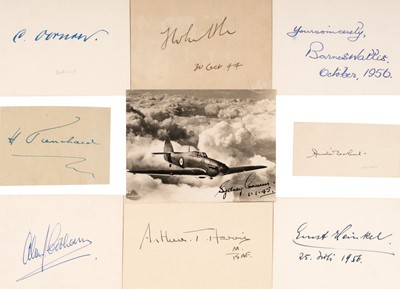 C. Dornier
30 Oct 44
Yours sincerely,
Barnes Wallis
October, 1956.
H Trenchard
Sydney Camm
Alan J. Cobham
Arthur T. Harris
M.
RAF
Ernst Heinkel
25. Juli 1956.